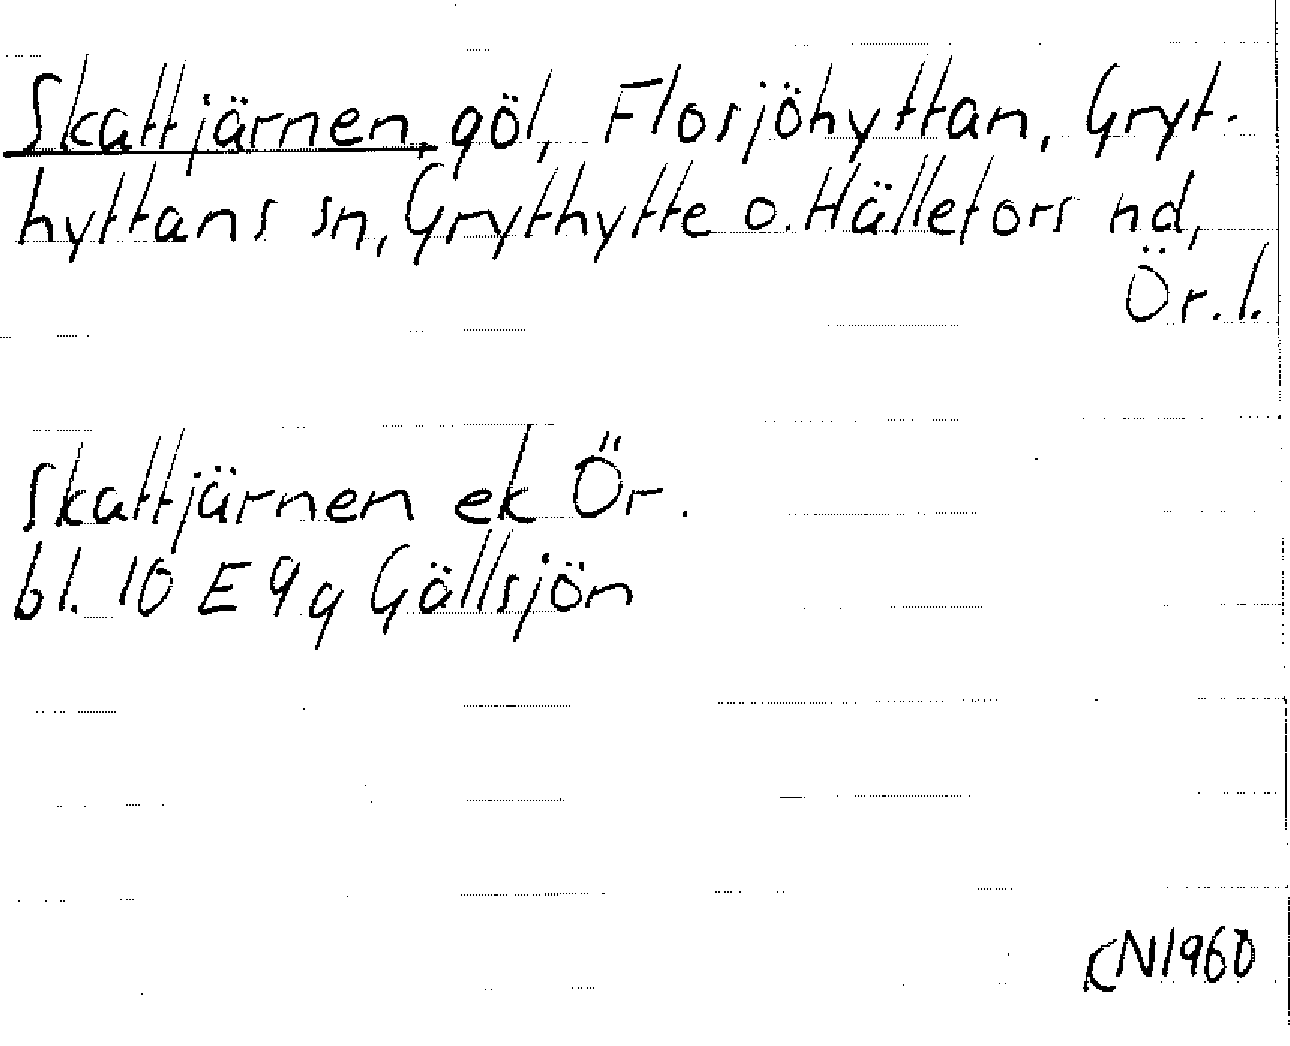 Skattjärnen, göl, Florsjöhyttan, Gryt-
hyttans sn, Grythytte o. Hällefors nd,
Ör. l.
Skattjärnen ek Ör.
bl. 10 E 9 g Gällsjön
CN 1960